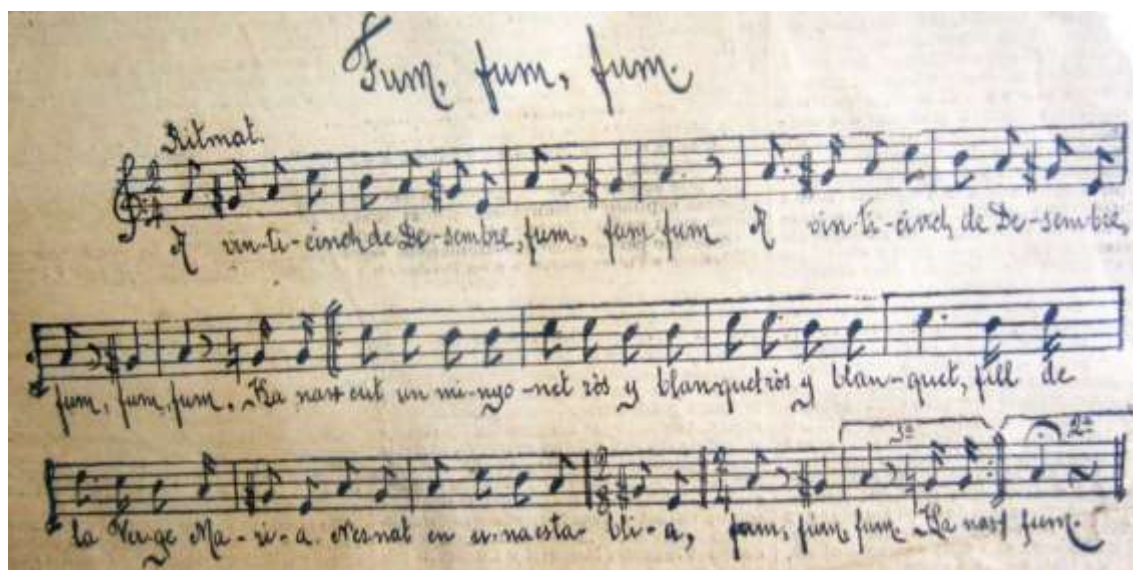 Fum, fum, fum.
Ritmat.
A vin-ti-cinch de De-sembre, fum, fum fum A vin-ti-cinch de De-sembre,
fum, fum, fum. Ha nas cut un mi-nyo-net ròs y blanquet ròs y blan-quet, fill de
la Verge Ma-ri-a. N'es nat en u-na esta-bli-a, fum, fum, fum Ha nas fum.